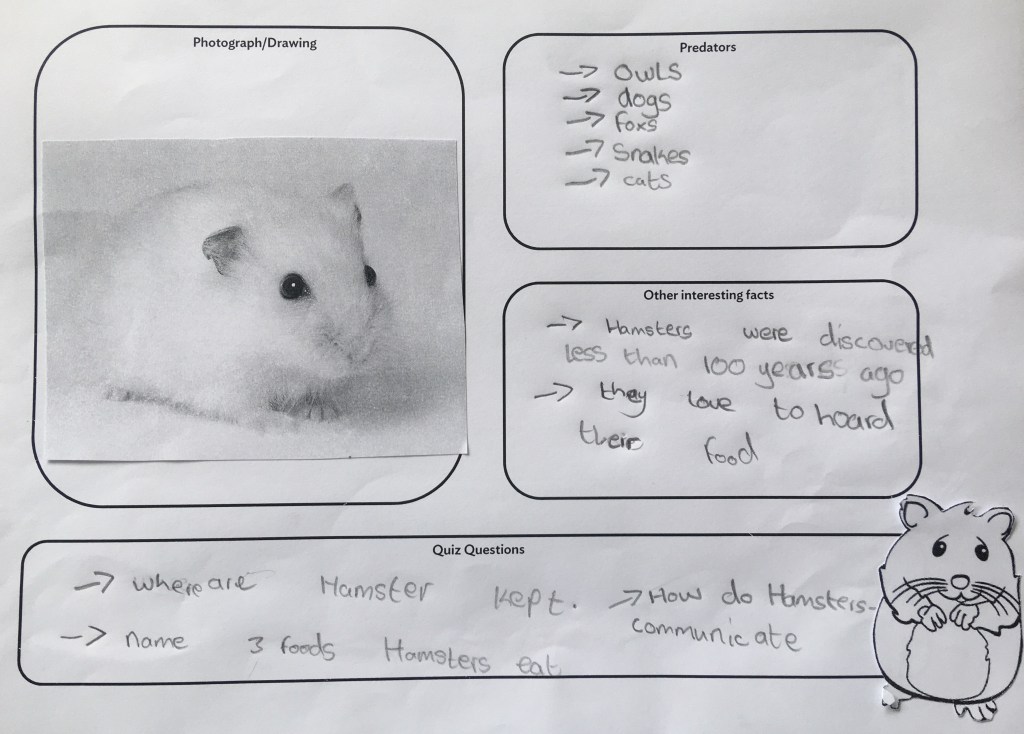 Photograph/Drawing
Predators
→ OWLS
→ dogs
→ foxs
→ Snakes
→ cats
Other interesting facts
→ Hamsters were discovered
less than 100 yearss ago
→ they love to hoard
their food
Quiz Questions
→ where are Hamster kept.
→ name 3 foods Hamsters eat
→ How do Hamsters-
communicate